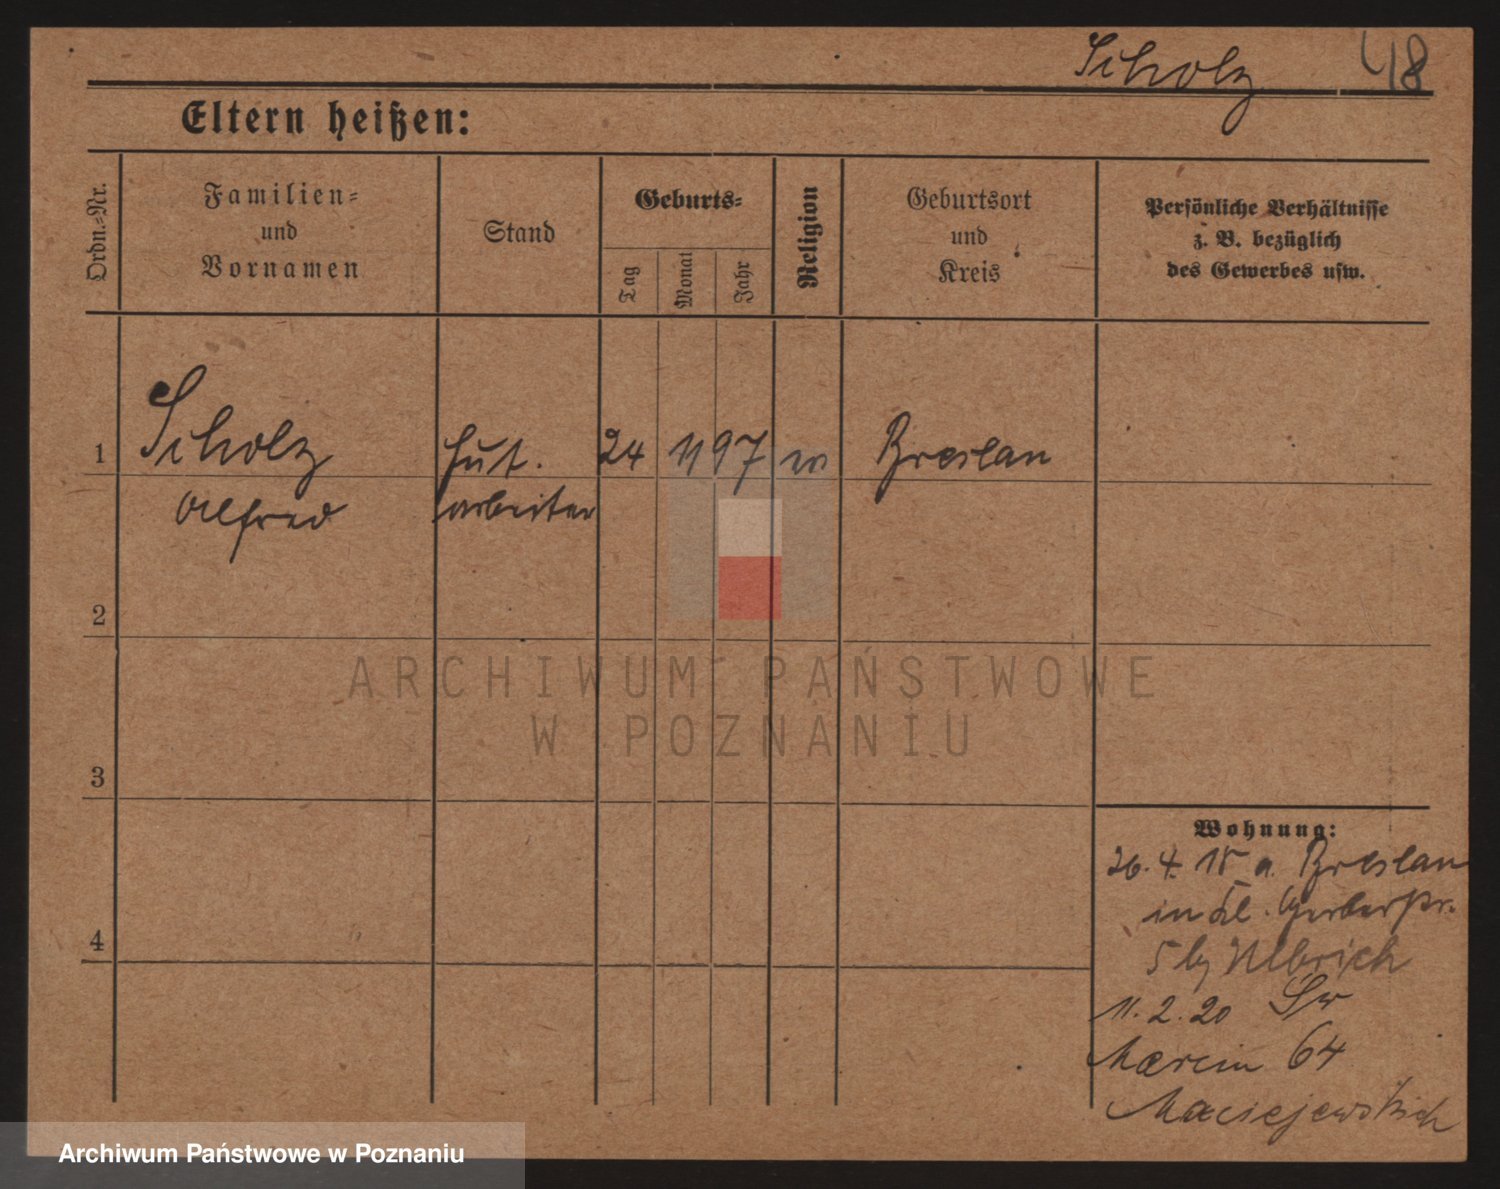 Scholz 48
Eltern heißen:
Ordn.-Nr.
Familien-
und
Vornamen
Stand
Geburts-
Tag
Monat
Jahr
Religion
Geburtsort
und
Kreis
Persönliche Verhältnisse
z. B. bezüglich
des Gewerbes usw.
1 Scholz 24 11 97 Breslau
Alfred arbeiter
2
3
4
Wohnung:
26. 4. 18 a. Breslau
in Kl. Gerberstr.
5 by Ulbrich
11. 2. 20 Św
Marcin 64
Maciejewskich
ARCHIWUM PAŃSTWOWE
W POZNANIU
Archiwum Państwowe w Poznaniu